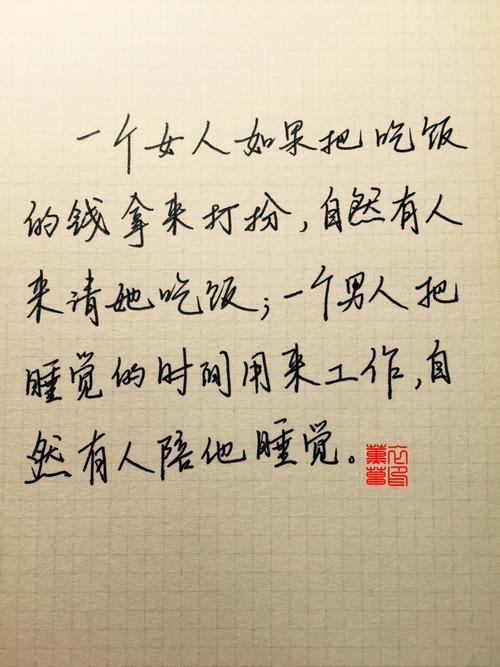 一个女人如果把吃饭
的钱拿来打扮，自然有人
来请她吃饭；一个男人把
睡觉的时间用来工作，自
然有人陪他睡觉。